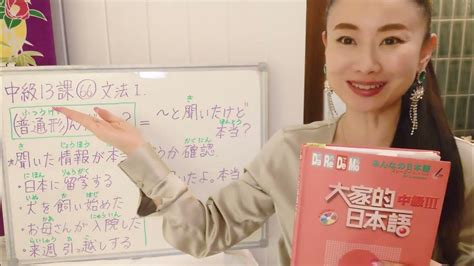 中級13課 66 文法1.
ふつうけい
(普通形)ん ? = ～と聞いたけど
き
本当？
ほんとう
じょうほう
かくにん
*聞いた情報が本 うか確認
にほん りゅうがく
・日本に留学す いたよ。本当
いぬ か はじ
・犬を飼い始めた
かあ にゅういん
・お母さんが入院し
らいしゅう ひ こ
・来週引っ越しする
Do Re Mi
みんなの日本語
大家的
日本語
中級III